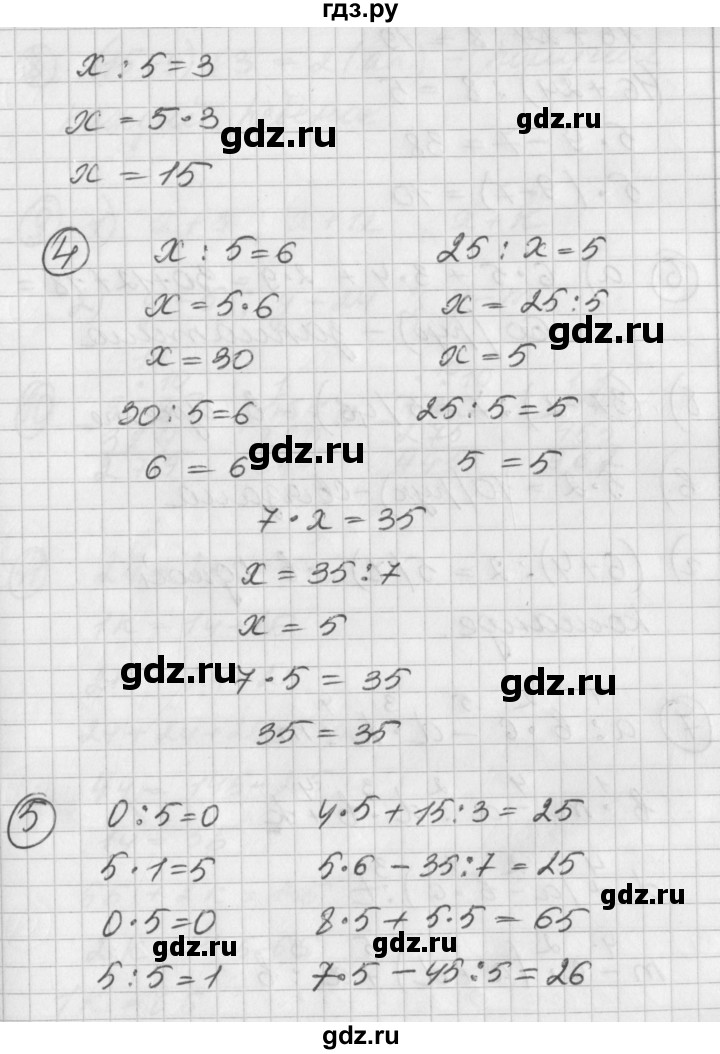 гдз.ру
x : 5 = 3
x = 5 · 3
x = 15
gdz.ru
gdz.ru
4 x : 5 = 6 25 : x = 5
x = 5 · 6 x = 25 : 5
gdz.ru
x = 30 x = 5
30 : 5 = 6 25 : 5 = 5
6 = 6 5 = 5
gdz.ru
7 · x = 35
x = 35 : 7
x = 5
gdz.ru
7 · 5 = 35
gdz.ru
35 = 35
5 0 : 5 = 0 4 · 5 + 15 : 3 = 25
5 · 1 = 5 5 · 6 - 35 : 7 = 25
gdz.ru
0 · 5 = 0 8 · 5 + 5 · 5 = 65
gdz.ru
gdz.ru
5 : 5 = 1 7 · 5 - 45 : 5 = 26
gdz.ru